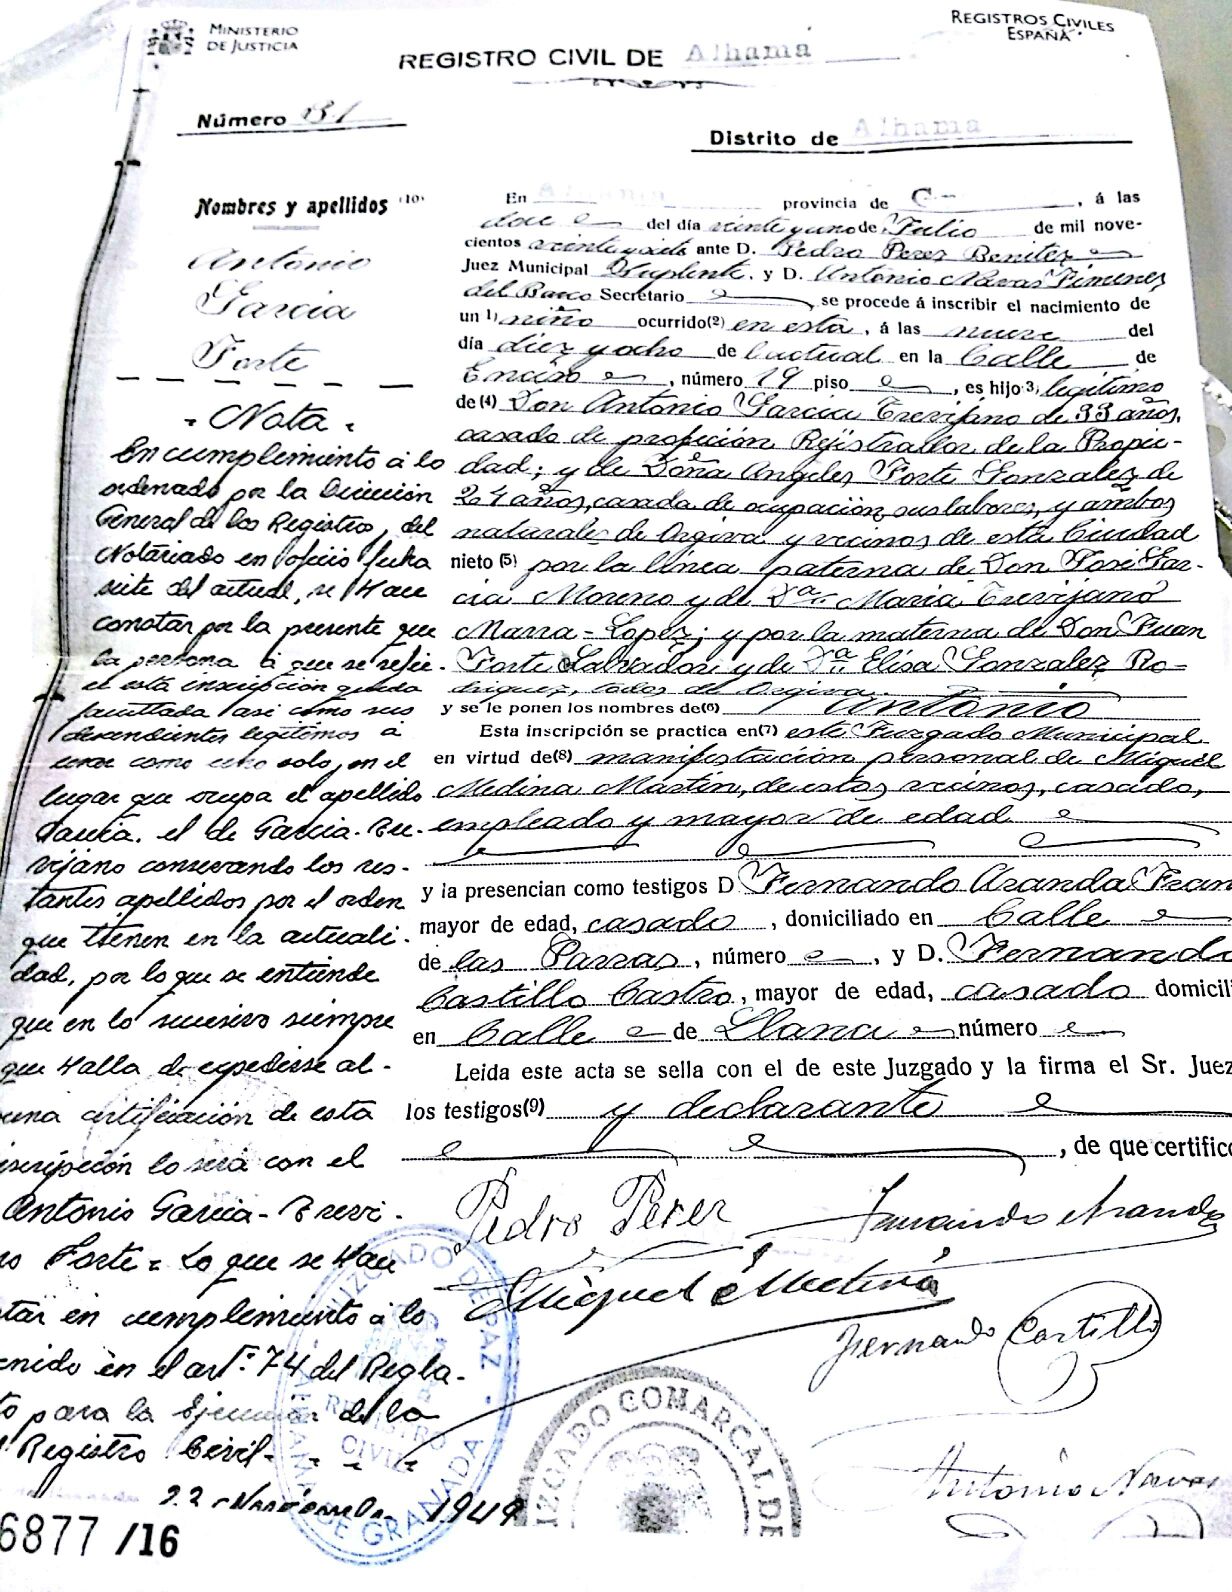 MINISTERIO
DE JUSTICIA
REGISTROS CIVILES
ESPAÑA
REGISTRO CIVIL DE Alhama
Número 31
Distrito de Alhama
Nombres y apellidos (10)
Antonio
Garcia
Forte
- Nota -
En cumplimiento á lo
ordenado por la Dirección
General de los Registro, del
Notariado en oficio fecha
siete del actual, se Hace
constar por la presente que
la persona á que se refie-
re esta inscripción queda
facultada asi como sus
descendientes legitimos á
usar como uno solo, en el
lugar que ocupa el apellido
Garcia, el de Garcia-Tre-
vijano conservando los res-
tantes apellidos por el orden
que tienen en la actuali-
dad, por lo que se entiende
que en lo sucesivo siempre
que Halla de expedirse al-
una certificación de esta
inscripción lo será con el
Antonio Garcia-Trevi-
no Forte = Lo que se Hace
tar en cumplimiento á lo
enido en el artº 74 del Regla-
to para la Ejecución de la
l Registro Civil - - - -
22 - Noviembre 1949
6877 /16
En Alhama provincia de G , á las
doce del día veinte y uno de Julio de mil nove-
cientos veinte y siete ante D. Pedro Perez Benitez
Juez Municipal Suplente. y D. Antonio Navas Jimenez
del Barco Secretario , se procede á inscribir el nacimiento de
un 1) niño ocurrido(2) en esta, á las nueve del
día diez y ocho de l'actual en la Calle de
Enciso , número 19 piso , es hijo 3) legitimo
de (4) Don Antonio Garcia Trevijano de 33 años,
casado de profeción Rejistrador de la Propie-
dad; y de Doña Angeles Forte Gonzalez de
24 años, casada de ocupación sus labores, y ambos
naturales de Orgiva y vecinos de esta Ciudad
nieto (5) por la línea paterna de Don José Gar-
cia Moreno y de Dª Maria Trevijano
Marra-Lopez; y por la materna de Don Juan
Forte Salvador y de Dª Elisa Gonzalez Ro-
driguez, todos de Orgiva.
y se le ponen los nombres de(6) Antonio
Esta inscripción se practica en(7) este Juzgado Municipal
en virtud de(8) manifestación personal de Miguel
Medina Martin, de estos vecinos, casado,
empleado y mayor de edad
y la presencian como testigos D. Fernando Aranda Fran
mayor de edad, casado , domiciliado en Calle
de las Parras, número , y D. Fernando
Castillo Castro, mayor de edad, casado domicili
en Calle de Llana número
Leida este acta se sella con el de este Juzgado y la firma el Sr. Juez
los testigos(9) y declarante
, de que certifico
Pedro Perez
Fernando Aranda
Miguel Medina
Fernando Castillo
Antonio Navas
JUZGADO DE PAZ
REGISTRO
CIVIL
ALHAMA DE GRANADA
JUZGADO COMARCAL DE